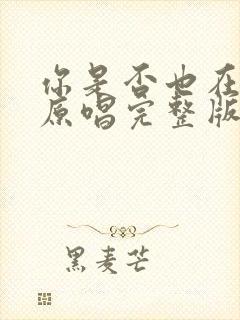 你是否也在
原唱完整版
黑麦芒